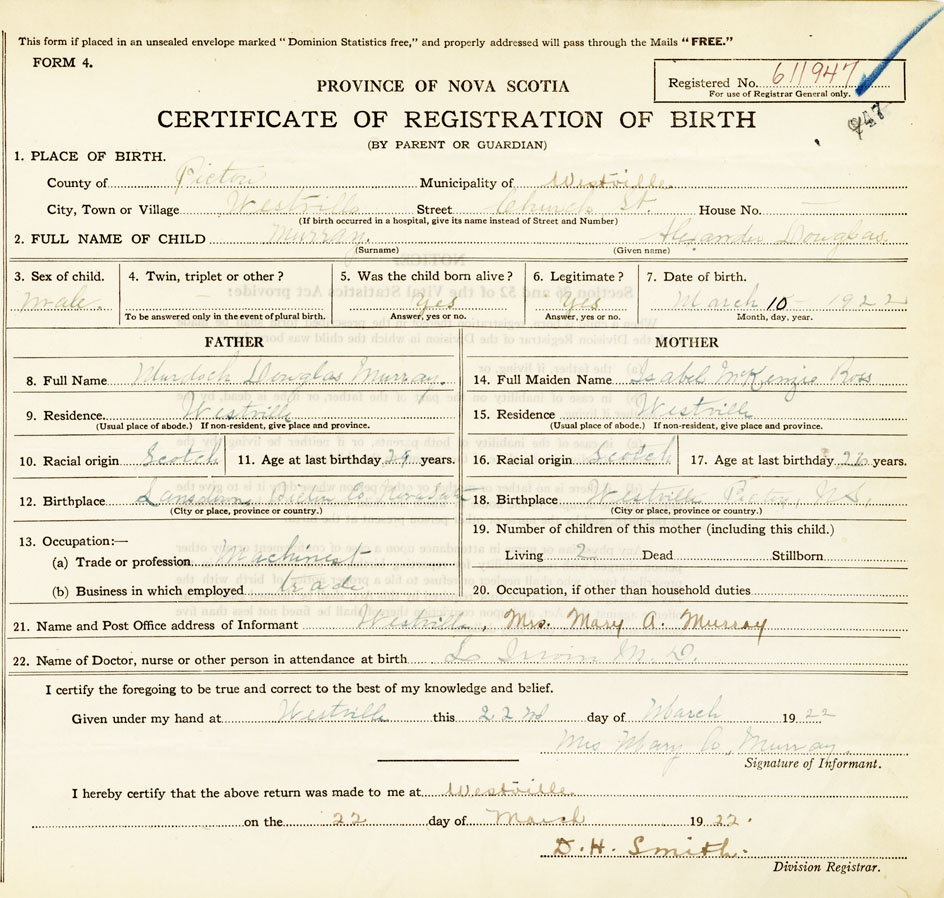 This form if placed in an unsealed envelope marked "Dominion Statistics free," and properly addressed will pass through the Mails "FREE."
FORM 4.
Registered No. 611947
For use of Registrar General only.
947
PROVINCE OF NOVA SCOTIA
CERTIFICATE OF REGISTRATION OF BIRTH
(BY PARENT OR GUARDIAN)
1. PLACE OF BIRTH.
County of Pictou Municipality of Westville
City, Town or Village Westville Street Church St. House No. —
(If birth occurred in a hospital, give its name instead of Street and Number)
2. FULL NAME OF CHILD Murray. Alexander Douglas
(Surname) (Given name)
3. Sex of child. 4. Twin, triplet or other? 5. Was the child born alive? 6. Legitimate? 7. Date of birth.
male. — yes yes March 10 – 1922
To be answered only in the event of plural birth. Answer, yes or no. Answer, yes or no. Month, day, year.
FATHER MOTHER
8. Full Name Murdoch Douglas Murray. 14. Full Maiden Name Isabel McKenzie Ross
9. Residence. Westville 15. Residence Westville
(Usual place of abode.) If non-resident, give place and province. (Usual place of abode.) If non-resident, give place and province.
10. Racial origin Scotch 11. Age at last birthday 29 years. 16. Racial origin Scotch 17. Age at last birthday years.
12. Birthplace Lansdowne Pictou Co. 18. Birthplace Westville Pictou, N.S.,
(City or place, province or country.) (City or place, province or country.)
13. Occupation:— 19. Number of children of this mother (including this child.)
(a) Trade or profession Machinest Living 2 Dead Stillborn
(b) Business in which employed trade 20. Occupation, if other than household duties
21. Name and Post Office address of Informant Westville, Mrs. Mary A. Murray
22. Name of Doctor, nurse or other person in attendance at birth Irwin M. D.
I certify the foregoing to be true and correct to the best of my knowledge and belief.
Given under my hand at Westville this 22nd day of March 1922
Mrs Mary A. Murray.
Signature of Informant.
I hereby certify that the above return was made to me at Westville
on the 22 day of March 1922.
D. H. Smith.
Division Registrar.